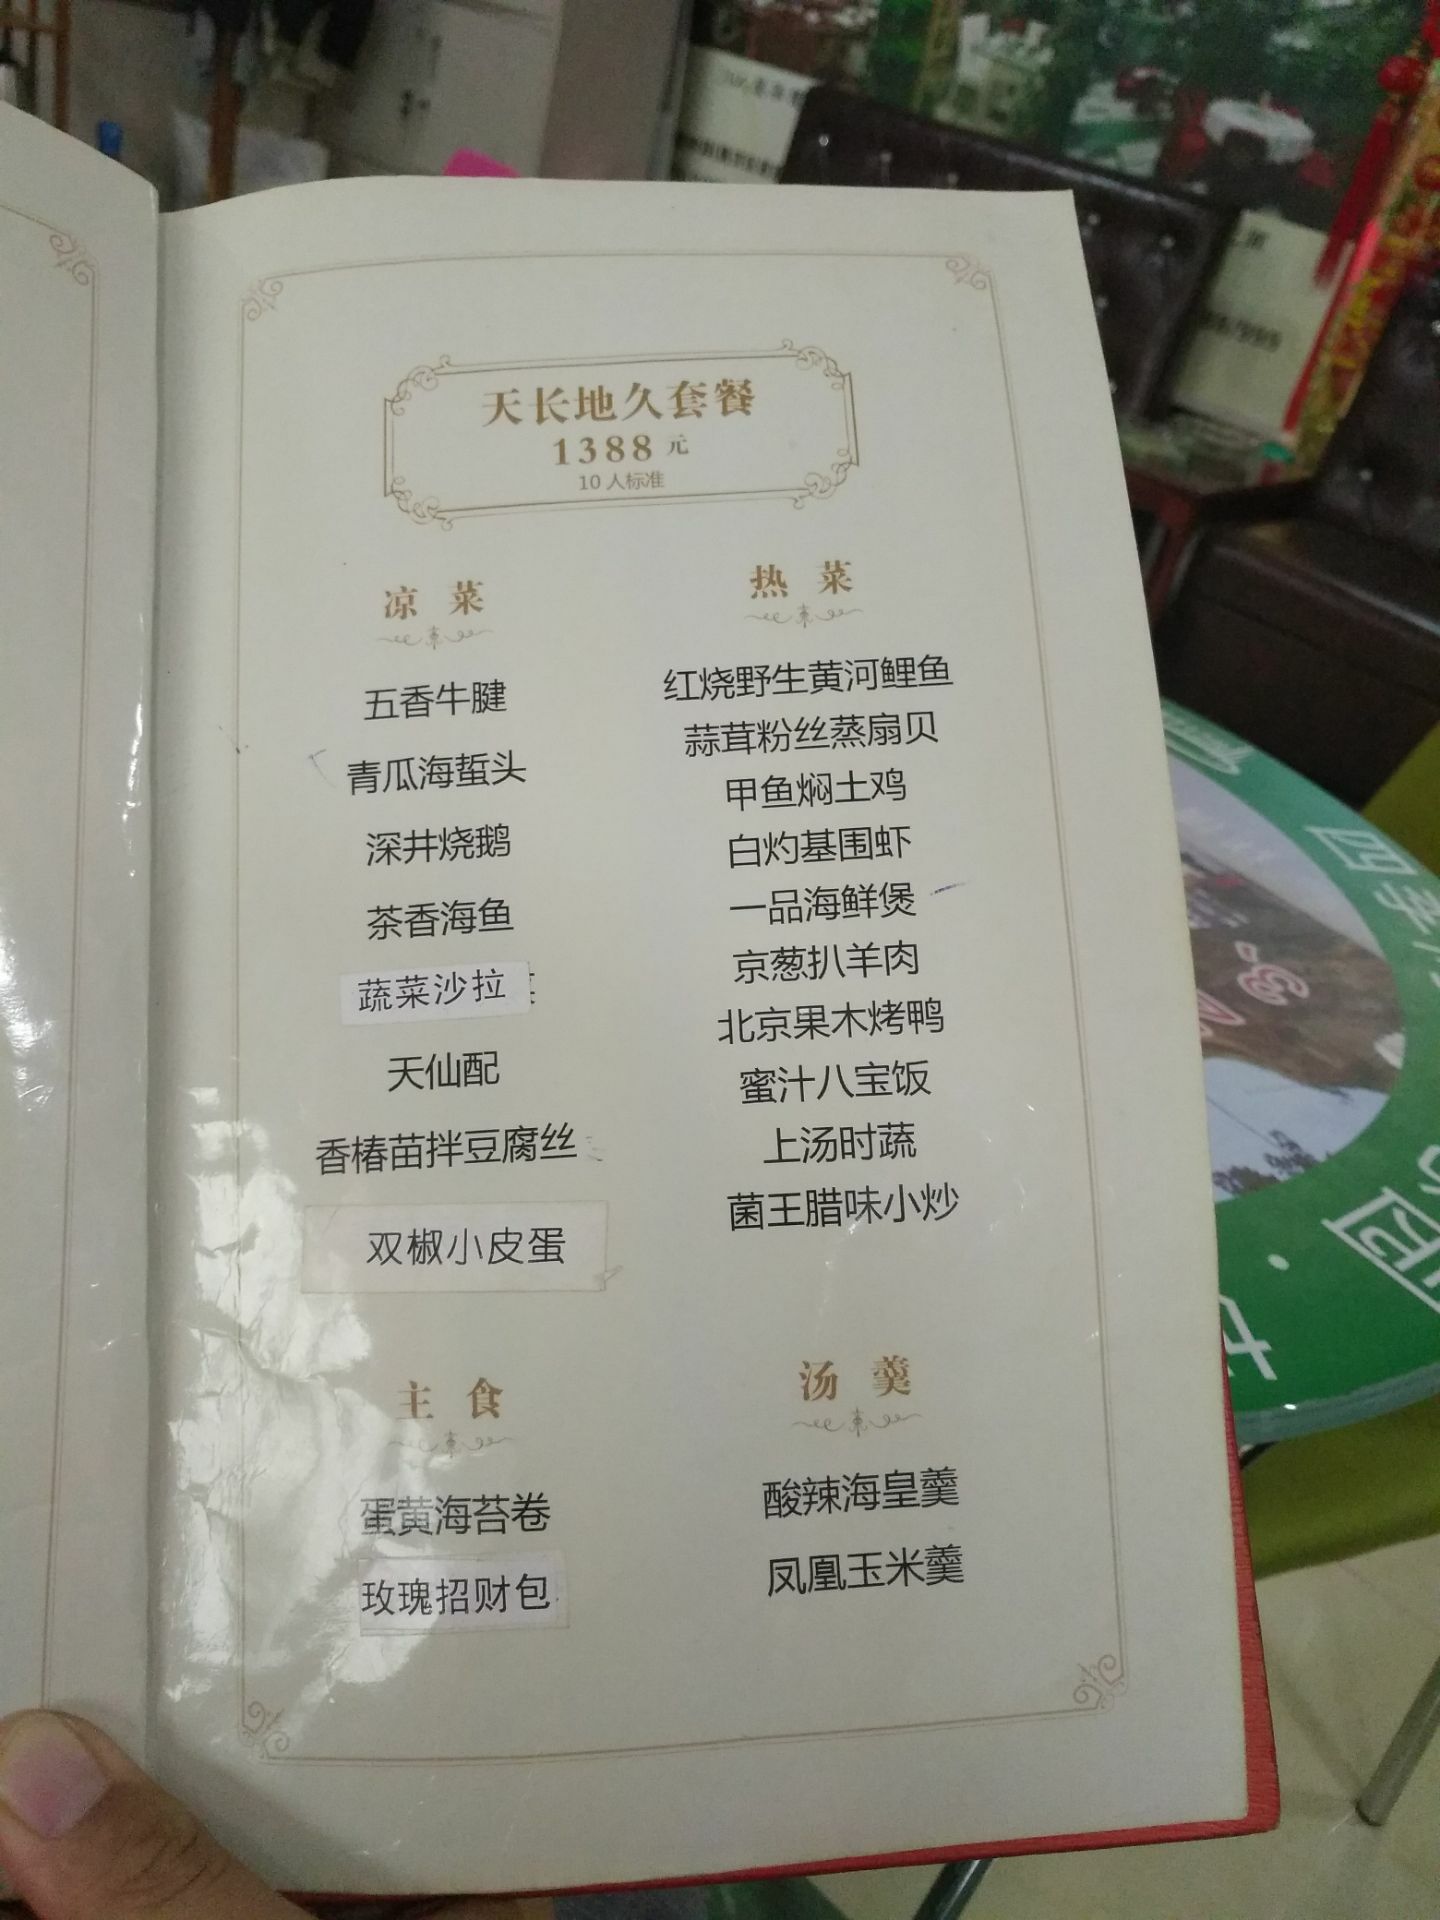 天长地久套餐
1388 元
10 人标准
凉 菜
五香牛腱
青瓜海蜇头
深井烧鹅
茶香海鱼
蔬菜沙拉
天仙配
香椿苗拌豆腐丝
双椒小皮蛋
热 菜
红烧野生黄河鲤鱼
蒜茸粉丝蒸扇贝
甲鱼焖土鸡
白灼基围虾
一品海鲜煲
京葱扒羊肉
北京果木烤鸭
蜜汁八宝饭
上汤时蔬
菌王腊味小炒
主 食
蛋黄海苔卷
玫瑰招财包
汤 羹
酸辣海皇羹
凤凰玉米羹
四季